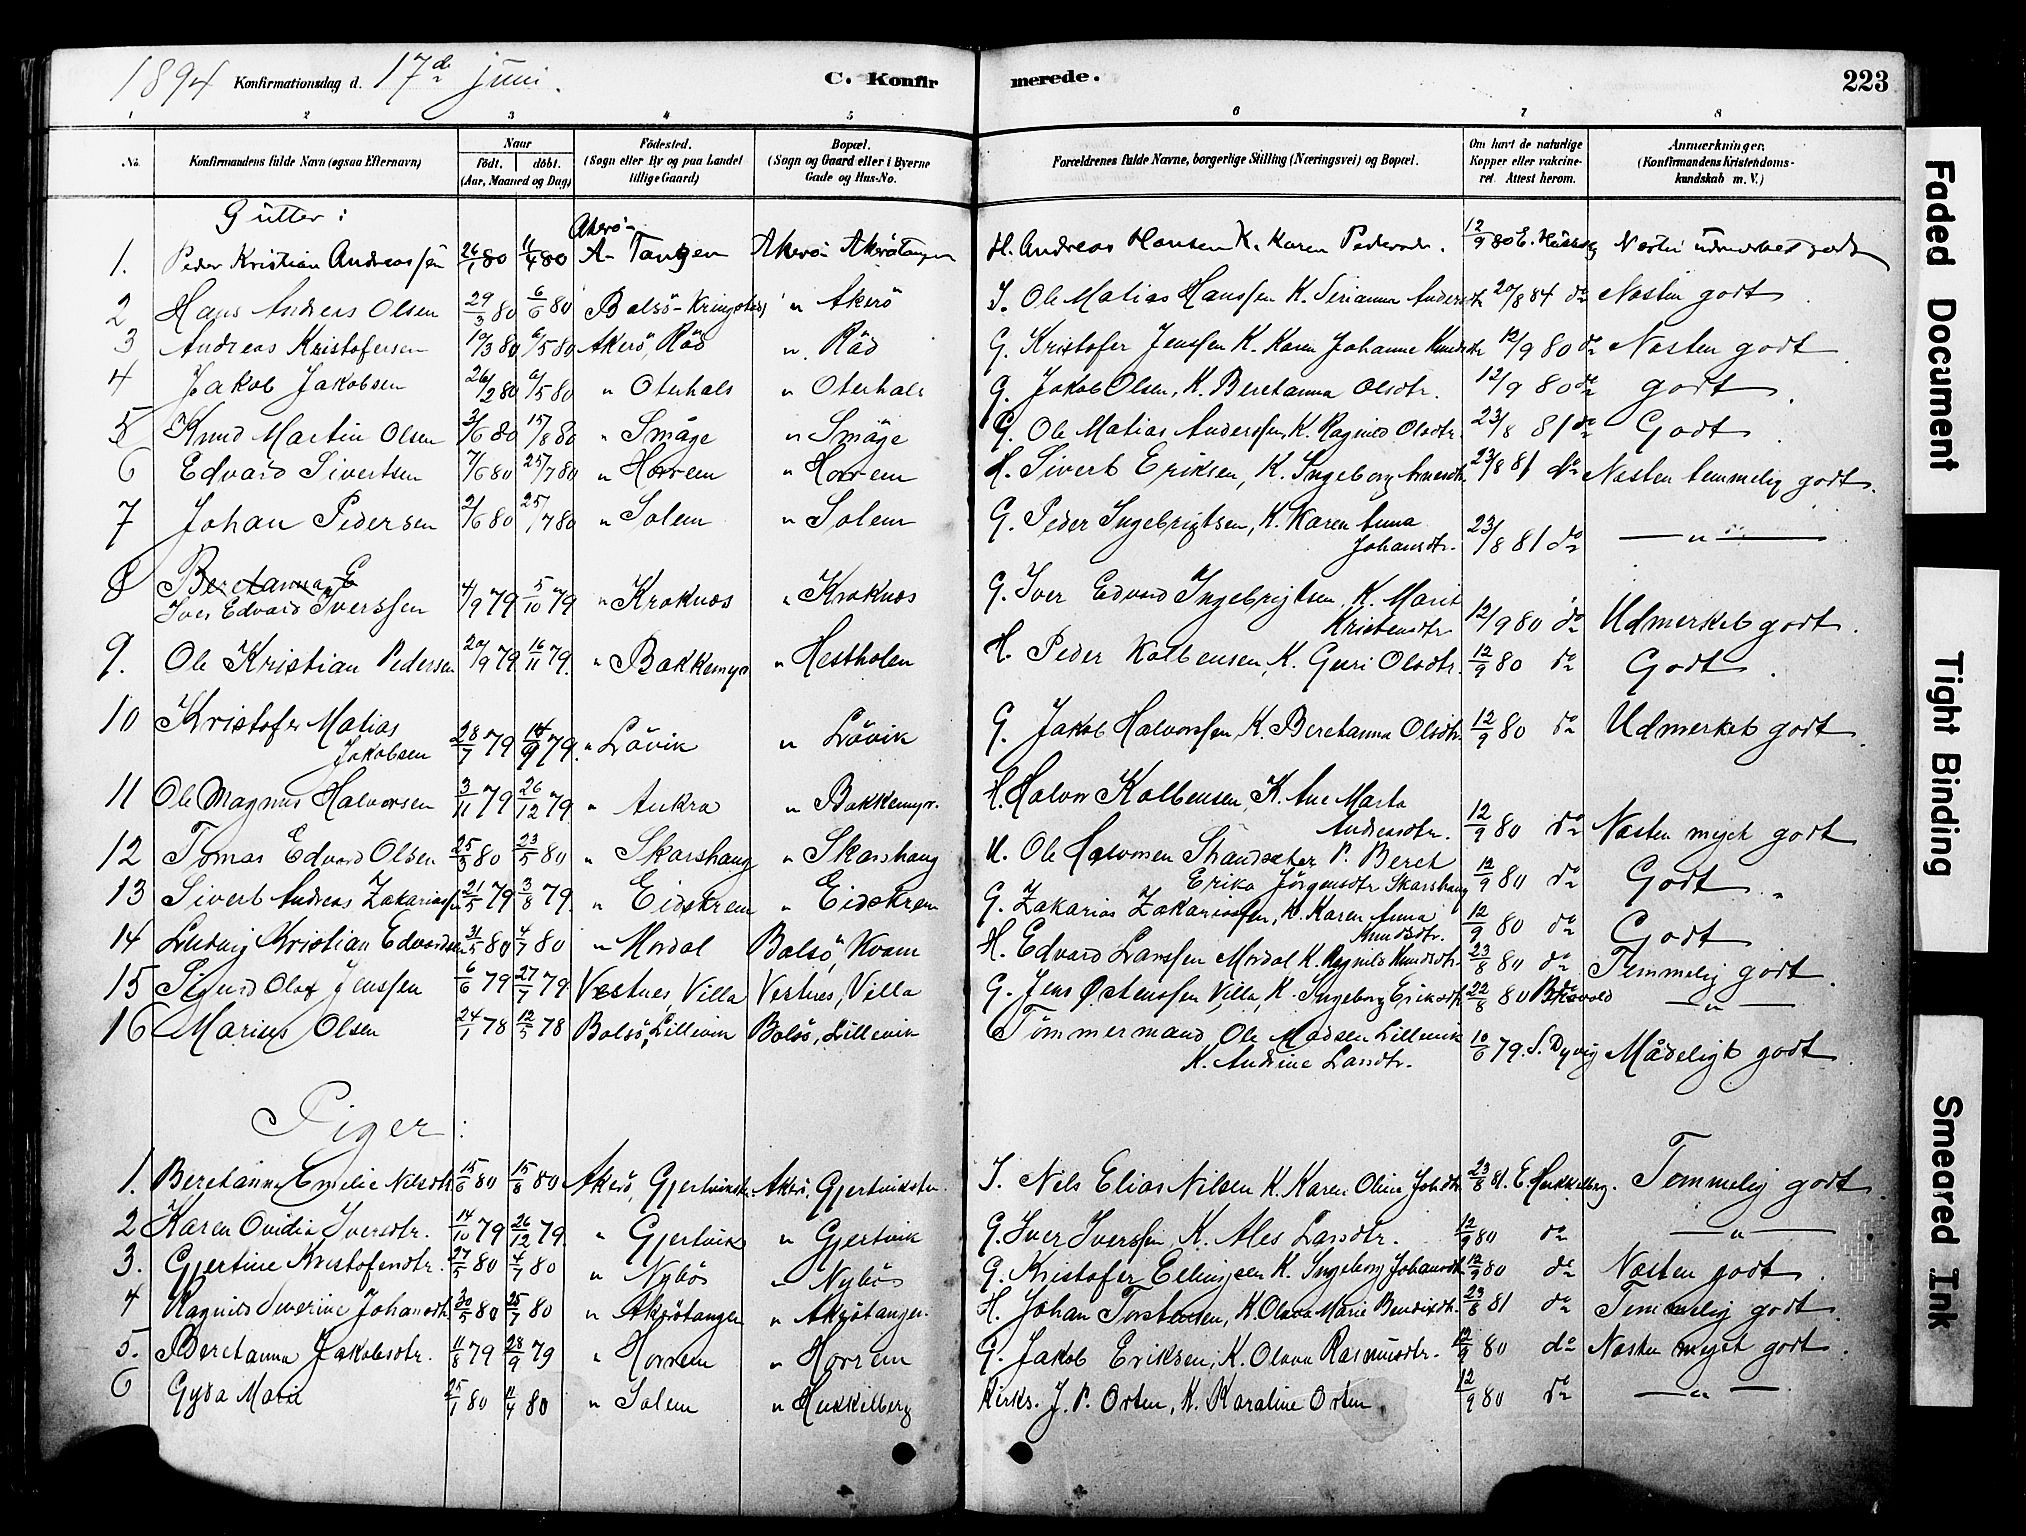 1894 Konfirmationsdag d. 17de juni. C. Konfirmerede. 223
1 2 3 4 5 6 7 8
No. Konfirmandens fulde Navn (ogsaa Efternavn) Naar Födt. döbt. (Aar, Maaned og Dag) Födested. (Sogn eller By og paa Landet tillige Gaard) Bopæl. (Sogn og Gaard eller i Byerne Gade og Hus-No. Forældrenes fulde Navne, borgerlige Stilling (Næringsvei) og Bopæl. Om havt de naturlige Kopper eller vaccineret. Attest herom. Anmærkninger. (Konfirmandens Kristendomskundskab m. V.)
Gutter:
1. Peder Kristian Andreassen 26/1 80 11/4 80 Akerö A- Tangen Akerö Akerötangen H. Andreas Hansen K. Karen Pedersdr. 12/9 80 E. Næsten udmerket godt
2 Hans Andreas Olsen 29/3 80 6/6 80 Bolsö-Kringstad " Akerö I. Ole Matias Hanssen K. Serianna Andersdtr 20/8 84 do Næsten godt
3 Andreas Kristofersen 10/3 80 6/5 80 Akerö, Röd " Röd G. Kristofer Jenssen K. Karen Johanne Knudsdtr 12/9 80 do Næsten godt
4 Jakob Jakobsen 26/2 80 6/5 80 " Oterhals " Oterhals G. Jakob Olsen, K. Beretanna Olsdtr. 12/9 80 do godt
5 Knud Martin Olsen 3/6 80 15/8 80 " Småge " Småge G. Ole Matias Anderssen, K. Ragnild Olsdtr. 23/8 81 do Godt
6 Edvard Sivertsen 7/6 80 25/7 80 " Horrem " Horrem H. Sivert Eriksen, K. Ingeborg Arnesdtr. 23/8 81 do Næsten temmelig godt.
7 Johan Pedersen 2/6 80 25/7 80 " Solem " Solem G. Peder Ingebrigtsen, K. Karen Anna
Johansdtr. 23/8 81 do — " —
8 Beretanna E
Iver Edvard Iverssen 4/9 79 5/10 79 " Kroknæs " Kroknæs G. Iver Edvard Ingebrigtsen, K. Marit
Kristensdtr 12/9 80 do Udmerket godt.
9. Ole Kristian Pedersen 20/9 79 16/11 79. " Bakkemyr " Hestholen H. Peder Kolbensen, K. Guri Olsdtr. 12/9 80 do Godt.
10 Kristofer Matias
Jakobsen 28/7 79 14/9 79. " Lövik " Lövik G. Jakob Halvorssen, K. Beretanna Olsdtr. 12/9 80 do Udmerket godt.
11 Ole Magnus Halvorsen 3/11 79 26/12 79. " Aukra " Bakkemyr. H. Halvor Kolbensen, K. Ane Marta
Andersdtr. 12/9 80 do Næsten myet godt
12 Tomas Edvard Olsen 25/3 80 23/5 80 " Skarshaug " Skarshaug U. Ole Halvorsen Strandsæter P. Beret
Erika Jörgensdtr Skarshaug 12/9 80 do Godt.
13 Sivert Andreas Zakariassen 21/5 79 3/8 79. " Eidskrem " Eidskrem G. Zakarias Zakariassen, K. Karen Anna
Knudsdtr. 12/9 80 do Godt
14 Ludvig Kristian Edvardsen 31/5 80 4/7 80 " Mordal Bolsö, Kvam H. Edvard Larssen Mordal K. Ragnild Knudsdtr. 23/8 80 do Temmelig godt.
15 Sigurd Olaf Jenssen 6/6 79 27/7 79. Vestnes Villa Vestnes, Villa G. Jens Østenssen Villa, K. Ingeborg Eriksdtr 22/8 80 — " —
16 Marius Olsen 24/1 78 12/5 78 Bolsö, Lillevik Bolsö, Lillevik Tömmermand Ole Madsen Lillevik
K. Andrine Larsdtr. 10/6 79. S. Dyvig Mådeligt godt.
Piger:
1. Beretanna Emelie Nilsdtr 15/6 80 15/8 80 Akerö, Gjertvikstr. Akerö, Gjertvikstr. I. Nils Elias Nilsen K. Karen Oline Johsdtr 23/8 81. E. Hukkelberg. Temmelig godt.
2 Karen Ovidia Iversdtr. 14/10 79 26/12 79. " Gjertvik " Gjertvik G. Iver Iverssen, K. Ales Larsdtr. 12/9 80 do — " —
3. Gjertine Kristofersdtr. 27/5 80 4/7 80 " Nybös " Nybös G. Kristofer Ellingsen K. Ingeborg Johansdtr. 12/9 80 do Næsten godt.
4 Ragnild Severine Johansdtr. 30/5 80 25/7 80 " Akerötangen " Akerötangen. H. Johan Torstensen, K. Olava Marie Bendixdtr. 23/8 81 do Temmelig godt.
5. Beretanna Jakobsdtr. 11/8 79 28/9 79 " Horrem " Horrem G. Jakob Eriksen, K. Olava Rasmusdtr. 12/9 80 do Næsten myet godt.
6 Gyda Marie 25/1 80 11/4 80 " Solem " Hukkelberg Kirks. J. P. Orten, K. Karoline Orten. 12/9 80 do — " —
Faded Document
Tight Binding
Smeared Ink